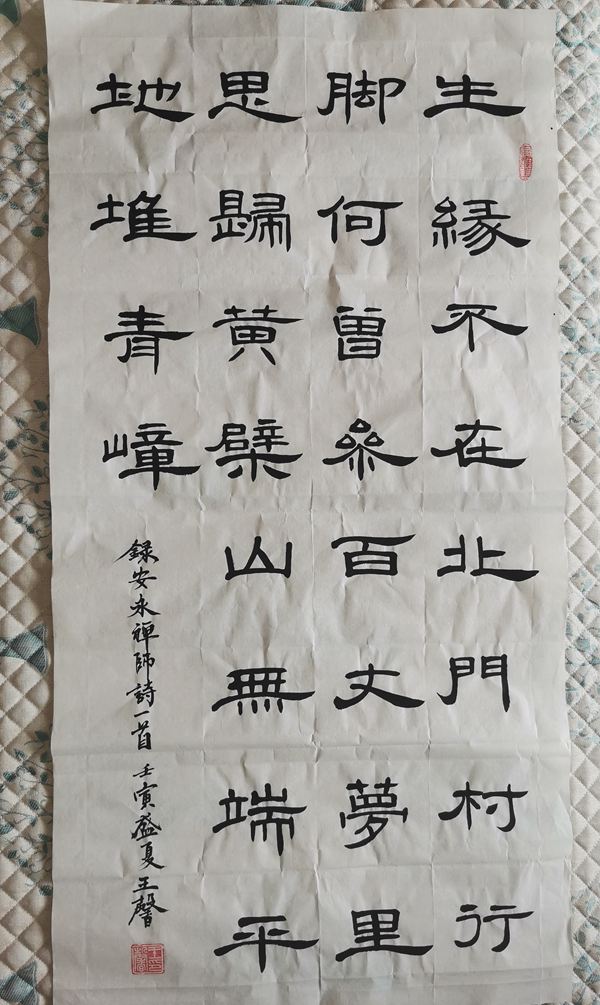 生緣不在北門村行
脚何曾參百丈夢里
思歸黃檗山無端平
地堆青嶂
録安永禪師詩一首 壬寅盛夏王馨